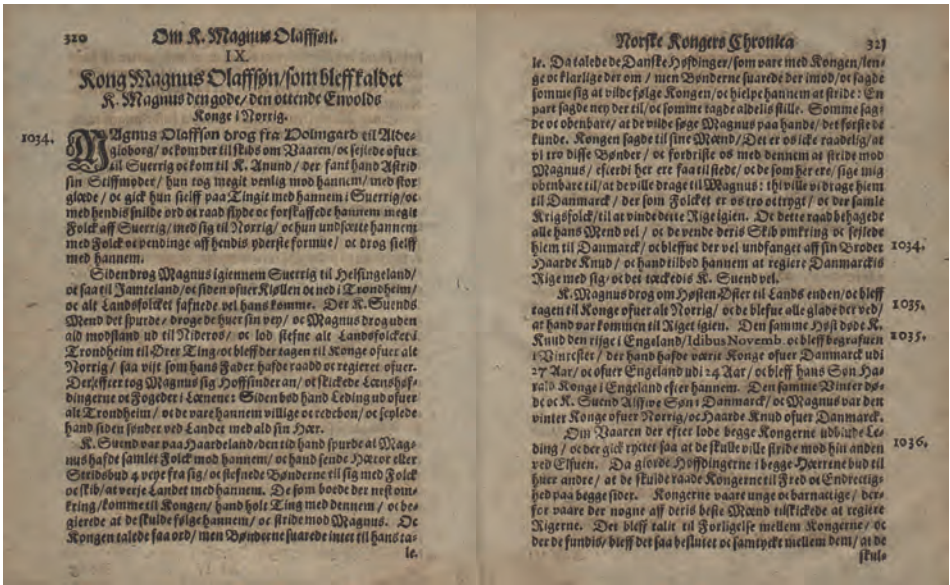 320
Om K. Magnus Olaffsøn.
IX.
Kong Magnus Olaffsøn/som bleff kaldet
K. Magnus den gode/ den ottende Envolds
Konge i Norrig.
1034.
MAgnus Olaffsøn drog fra Holmgard til Alde-
gioborg/ oc kom der til skibs om Vaaren/ oc sejlede ofuer
til Suerrig oc kom til K. Anund/ der fant hand Astrid
sin Stiffmoder/ hun tog megit venlig mod hannem/ med stor
glæde/ oc gick hun sielff paa Tingit med hannem i Suerrig/oc
med hendis snilde ord oc raad flyde oc forskaffede hannem megit
Folck aff Suerrig/ med sig til Norrig/ oc hun undsætte hannem
med Folck oc pendinge aff hendis yderste formue/ oc drog sielff
med hannem.
Siden drog Magnus igiennem Suerrig til Helsingeland/
oc saa til Jamteland/oc siden ofuer Kiøllen oc ned i Trondheim/
oc alt Landsfolcket fafnede vel hans komme. Der K. Suends
Mend det spurde/ droge de huer sin vey/ oc Magnus drog uden
ald modstand ud til Nideros/ oc lod stefne alt Landsfolcket i
Trondheim til Ører Ting/oc bleff der tagen til Konge ofuer alt
Norrig/ saa vijt som hans Fader hafde raadd oc regieret ofuer.
Der effter tog Magnus sig Hoffsinder an/ oc skickede Lænshøf-
dingerne oc Fogeder i Lænene: Siden bød hand Leding ud ofuer
alt Trondheim/ oc de vare hannem villige oc redebon/ oc seylede
hand siden sønder ved Landet med ald sin Hær.
K. Suend var paa Haardeland/den tid hand spurde at Mag-
nus hafde samlet Folck mod hannem/ oc hand sende Hæror eller
Stridsbud 4 veye fra sig/ oc stefnede Bønderne til sig med Folck
oc skib/at verje Landet med hannem. De som boede der nest om-
kring/komme til Kongen/ hand holt Ting med dennem / oc be-
gierede at de skulde følge hannem/ oc stride mod Magnus. Oc
Kongen talede faa ord/ men Bønderne suarede intet til hans ta-
le.
Norske Kongers Chronica
321
le. Da talede de Danske Høfdinger/som vare med Kongen/len-
ge oc klarlige der om / men Bønderne suarede der imod/ oc sagde
somme sig at vilde følge Kongen/ oc hielpe hannem at stride: En
part sagde ney der til/ oc somme tagde aldelis stille. Somme sag-
de oc obenbare/ at de vilde søge Magnus paa hande/ det første de
kunde. Kongen sagde til sine Mænd/ Det er os icke raadelig/ at
vi tro disse Bønder/ oc fordriste os med dennem at stride mod
Magnus/ efterdi her ere faa til stede/ oc de som her ere/ sige mig
obenbare til/ at de ville drage til Magnus: thi ville vi drage hiem
til Danmarck/ der som Folcket er os tro oc trygt/ oc der samle
Krigsfolck/til at vinde dette Rige igien. Oc dette raad behagede
alle hans Mend vel / oc de vende deris Skib omkring oc sejlede
hiem til Danmarck/ oc bleffue der vel undfanget aff sin Broder
1034.
Haarde Knud/ oc hand tilbød hannem at regiere Danmarckis
Rige med sig/ oc det tæckedis K. Suend vel.
K. Magnus drog om Høsten Øster til Lands enden/oc bleff
1035.
tagen til Konge ofuer alt Norrig/ oc de blefue alle glade der ved/
at hand var kommen til Riget igien. Den samme Høst døde K.
Knud den rijge i Engeland/Idibus Novemb. oc bleff begrafuen
1035.
i Vincester/ der hand hafde værit Konge ofuer Danmarck udi
27 Aar/ oc ofuer Engeland udi 24 Aar/ oc bleff hans Søn Ha-
rald Konge i Engeland efter hannem. Den samme Vinter dø-
de oc K. Suend Alffive Søn i Danmarck/ oc Magnus var den
vinter Konge ofuer Norrig/ oc Haarde Knud ofuer Danmarck.
Om Vaaren der efter lode begge Kongerne udbiude Le-
1036.
ding / oc der gick ryctet saa at de skulle ville stride mod hin anden
ved Elfuen. Da giorde Høffdingerne i begge Hærene bud til
huer andre/ at de skulde raade Kongerne til Fred oc Endrectig-
hed paa begge sider. Kongerne vaare unge oc barnactige/ der-
for vaare der nogne aff deris beste Mænd tilskickede at regiere
Rigerne. Det bleff talit til Forligelse mellem Kongerne/ oc
der de fundis/ bleff det saa beslutet oc samtyckt mellem dem/ at de
skul-